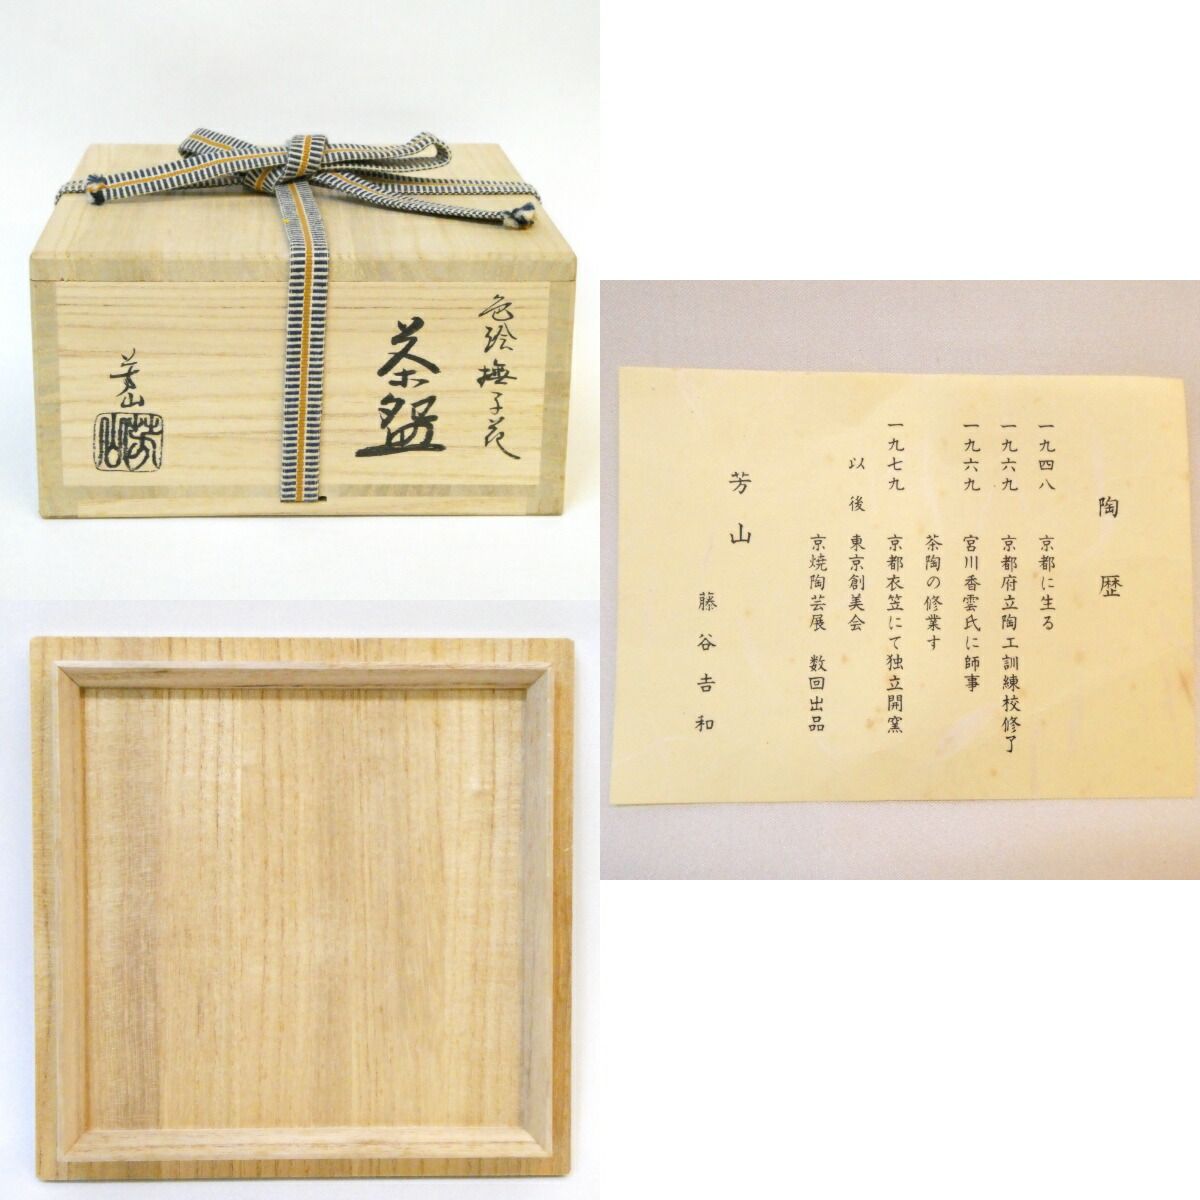 色絵撫子花
茶盌
芳山
芳山
陶歴
一九四八 京都に生る
一九六九 京都府立陶工訓練校修了
一九六九 宮川香雲氏に師事
茶陶の修業す
一九七九 京都衣笠にて独立開窯
以後 東京創美会
京焼陶芸展 数回出品
芳山
藤谷吉和